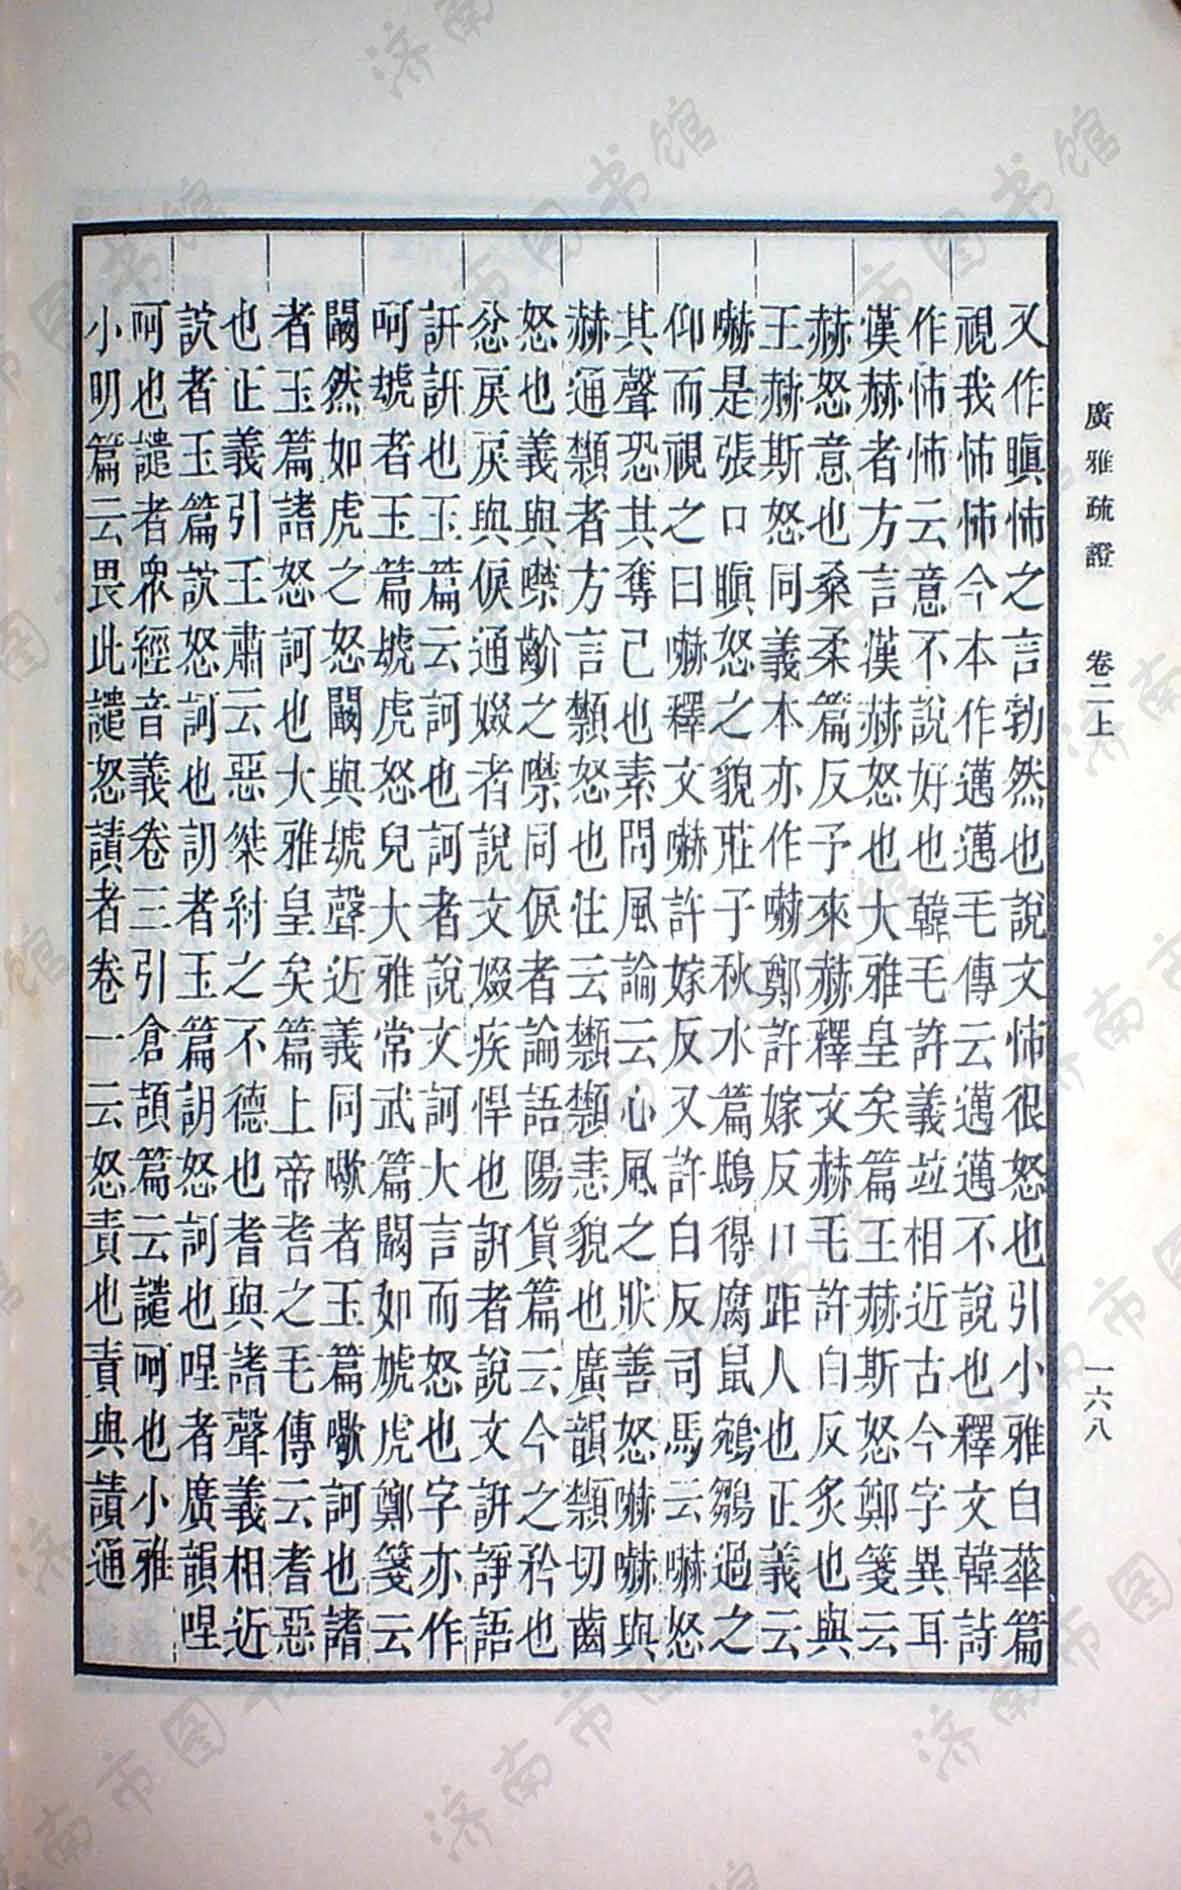 廣雅疏證 卷二上 一六八
又作瞋怖之言勃然也說文怖很怒也引小雅白華篇
視我怖怖今本作邁邁毛傳云邁邁不說也釋文韓詩
作怖怖云意不說好也韓毛許義竝相近古今字異耳
漢赫者方言漢赫怒也大雅皇矣篇王赫斯怒鄭箋云
赫怒意也桑柔篇反予來赫釋文赫毛許白反炙也與
王赫斯怒同義本亦作嚇鄭許嫁反口距人也正義云
嚇是張口瞋怒之貌莊子秋水篇鴟得腐鼠鵷鶵過之
仰而視之曰嚇釋文嚇許嫁反又許白反司馬云嚇怒
其聲恐其奪己也素問風論云心風之狀善怒嚇嚇與
赫通䫏者方言䫏怒也注云䫏䫏恚貌也廣韻䫏切齒
怒也義與噤齘之噤同㑦者論語陽貨篇云今之矜也
忿戾戾與㑦通娺者說文娺疾悍也訮者說文訮諍語
訮訮也玉篇云訶也訶者說文訶大言而怒也字亦作
呵㙈者玉篇㙈虎怒皃大雅常武篇闞如虓虎鄭箋云
闞然如虎之怒闞與㙈聲近義同嘫者玉篇嘫訶也諸
者玉篇諸怒訶也大雅皇矣篇上帝耆之毛傳云耆惡
也正義引王肅云惡桀紂之不德也耆與諸聲義相近
訦者玉篇訦怒訶也訒者玉篇訒怒訶也哩者廣韻哩
呵也譴者眾經音義卷三引倉頡篇云譴呵也小雅
小明篇云畏此譴怒謮者卷一云怒責也責與謮通